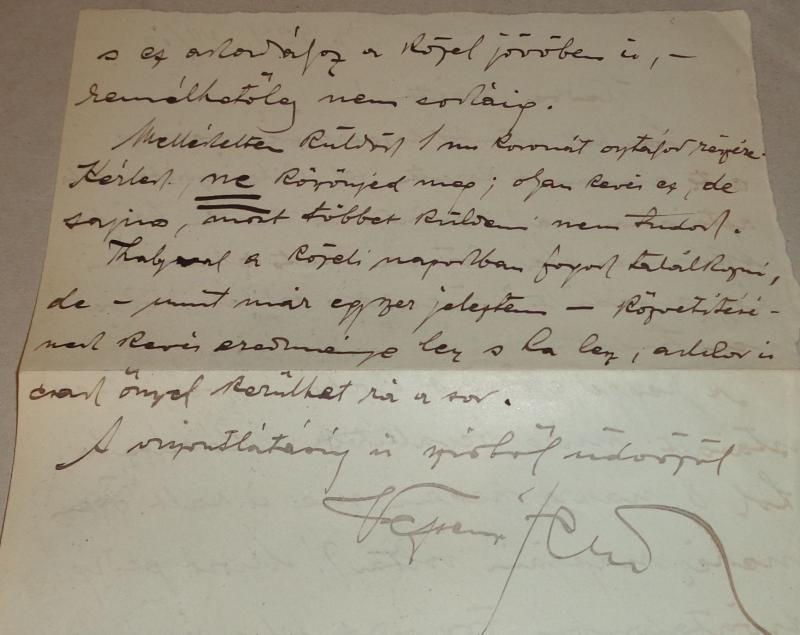 s ez akadályoz a közel jövőben is, –
remélhetőleg nem sokáig.
Mellékelten küldök 1 koronát részére.
Kérlek, ne köszönjed meg; olyan kevés ez, de
sajnos, most többet küldeni nem tudok.
a közeli napokban fogok találkozni,
de – mint már egyszer jeleztem – közvetítésé-
nek kevés eredménye lesz s ha lesz, akkor is
csak ősszel kerülhet rá a sor.
A viszontlátásig is szívből üdvözöl